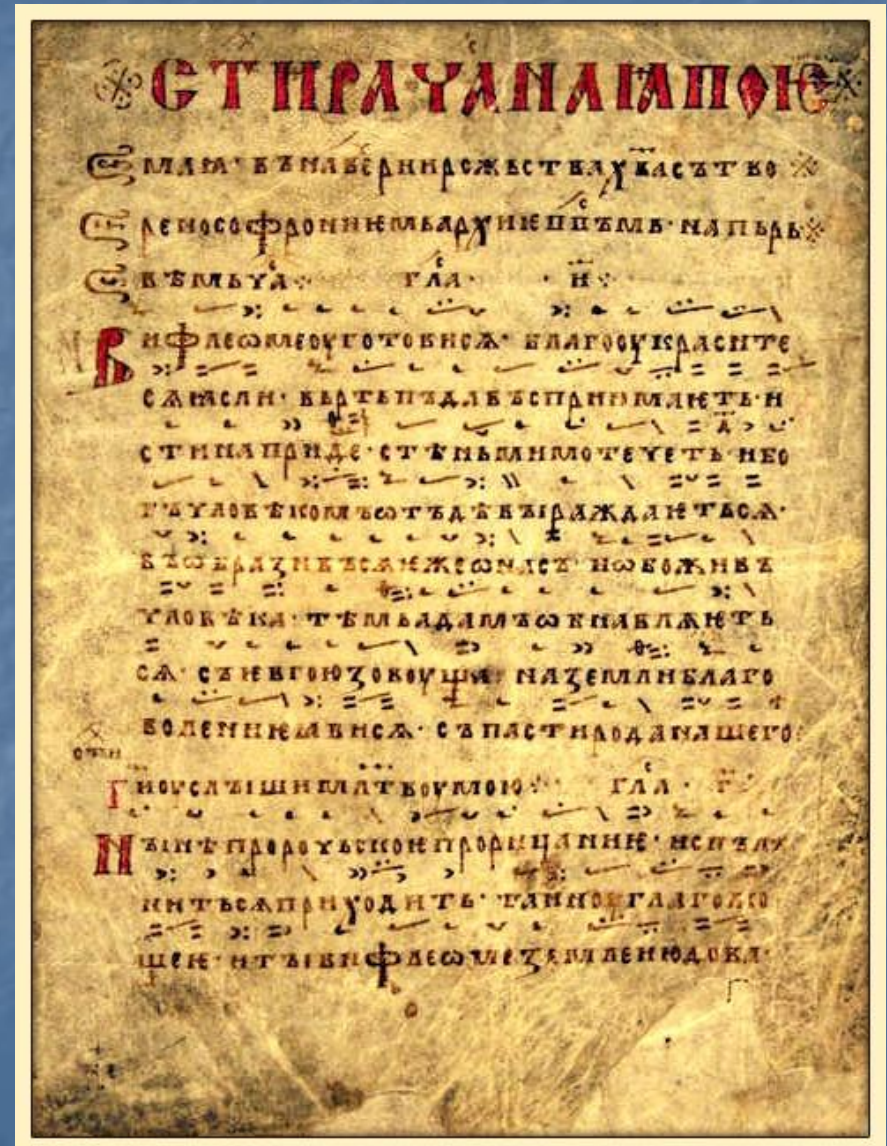 СТИРА ЧА НА ІА ПОѤ
ВЪ НАВЕРИИ РОЖЬСТВА ХВА СЪТВО
РЕНО СОФРОНИѤМЬ АРХИѤППЪМЬ· НА ПЬРЬ
ВѢМЬ ЧА· ГЛА· И·
ВИФЛЕѠМЕ ОУГОТОВИСѦ· БЛАГО ОУКРАСИТЕ
СѦ ꙖСЛИ· ВЬРТЬПЪ ДА ВЪСПРИИМАѤТЬ· И
СТИНА ПРИДЕ· СТѢНЬ МИМОТЕЧЕТЬ· И БО
ГЪ ЧЛОВѢКОМЪ ѠТЪ ДѢВꙐ РАЖДАѤТЬСѦ·
ВЪѠБРАЗИВЪСѦ ѤЖЕ Ѡ НАСЪ· И ѠБОЖИВЪ
ЧЛОВѢКА· ТѢМЬ АДАМЪ ѠБНАВЛѦѤТЬ
СѦ· СЪ ѤВГОЮ ЗОВОУЩА· НА ЗЕМЛИ БЛАГО
ВОЛЕНИѤ ꙖВИСѦ· СЪПАСТИ РОДА НАШЕГО·
ГИ ОУСЛꙐШИ МЛТВОУ МОЮ· ГЛА· Г·
НꙐНѢ ПРОРОЧЬСКОѤ ПРОРИЦАНИѤ· ИСПЪЛ
НИТЬСѦ ПРИХОДИТЬ· ТАИНО ГЛАГОЛЮ
ЩЕѤ· И ТꙐ ВИФЛЕѠМЕ ЗЕМЛЕ ИЮДОВА·